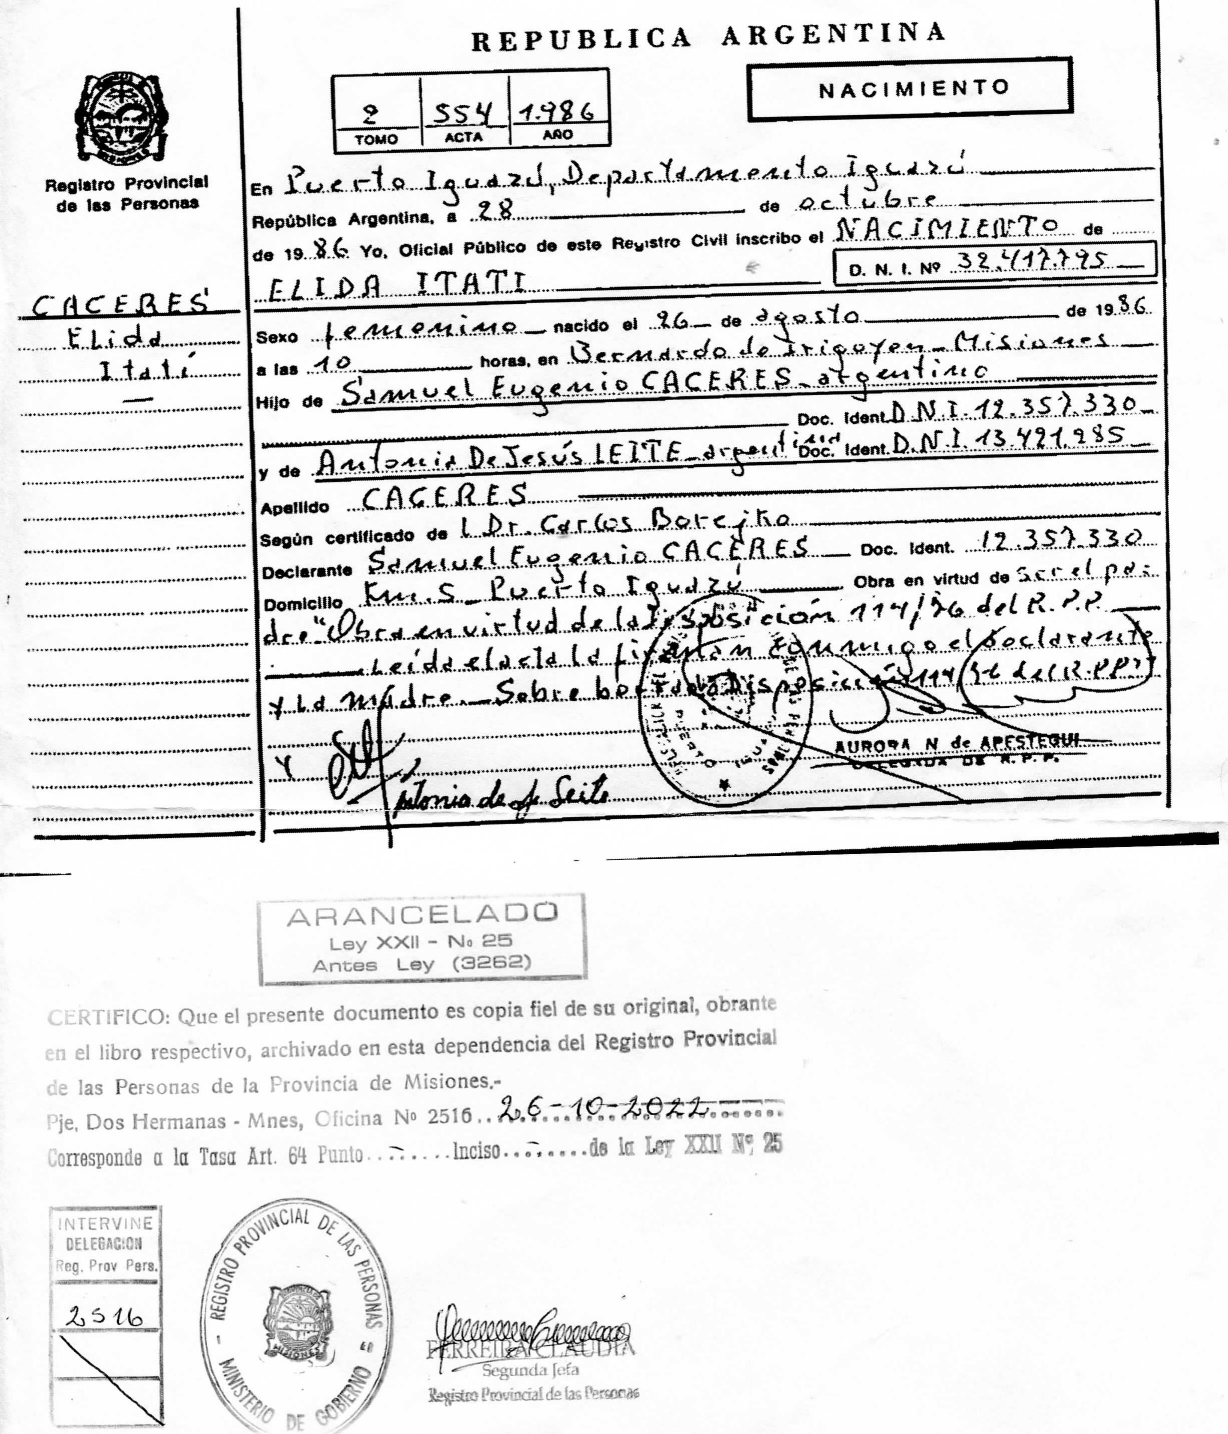 REPUBLICA ARGENTINA
NACIMIENTO
2 554 1.986
TOMO ACTA AÑO
Registro Provincial
de las Personas
En Puerto Iguazú, Departamento Iguazú
República Argentina, a 28 de octubre
de 1986 Yo, Oficial Público de este Registro Civil inscribo el NACIMIENTO de
ELIDA ITATI D. N. I. Nº 32.417.795
CACERES
Elida
Itatí
Sexo femenino nacido el 26 de agosto de 1986
a las 10 horas, en Bernardo de Irigoyen - Misiones
Hijo de Samuel Eugenio CACERES - argentino
Doc. Ident. D.N.I. 12.357.330
y de Antonia De Jesús LEITE - argentina Doc. Ident. D.N.I. 13.421.285
Apellido CACERES
Según certificado de l Dr. Carlos
Declarante Samuel Eugenio CACERES Doc. Ident. 12.357.330
Domicilio Km. 5 - Puerto Iguazú Obra en virtud de ser el pa-
dre "Obra en virtud de la Disposición 114/86 del R.P.P.
Leída el acta la firman conmigo el declarante
y la madre - Sobre borrado Disposición 114/86 del R.P.P.
AURORA N de APESTEGUI
DELEGADA DE R.P.P.
Antonia de J. Leite
ARANCELADO
Ley XXII - Nº 25
Antes Ley (3262)
CERTIFICO: Que el presente documento es copia fiel de su original, obrante
en el libro respectivo, archivado en esta dependencia del Registro Provincial
de las Personas de la Provincia de Misiones.-
Pje. Dos Hermanas - Mnes, Oficina Nº 2516.. 26-10-2022
Corresponde a la Tasa Art. 64 Punto....-.....Inciso...-.....de la Ley XXII Nº 25
INTERVINE
DELEGACION
Reg. Prov Pers.
2516
REGISTRO PROVINCIAL DE LAS PERSONAS
MINISTERIO DE GOBIERNO
MISIONES
FERREIRA CLAUDIA
Segunda Jefa
Registro Provincial de las Personas